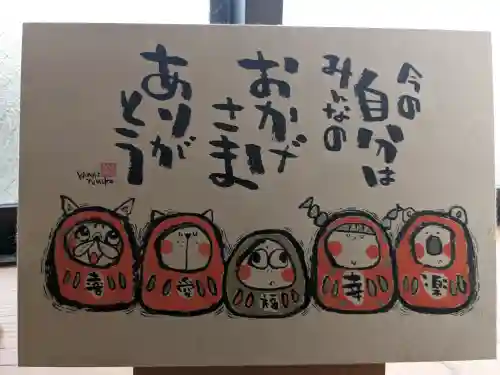 今の
自分は
みんなの
おかげ
さま
ありが
とう
幸
愛
福
幸
楽